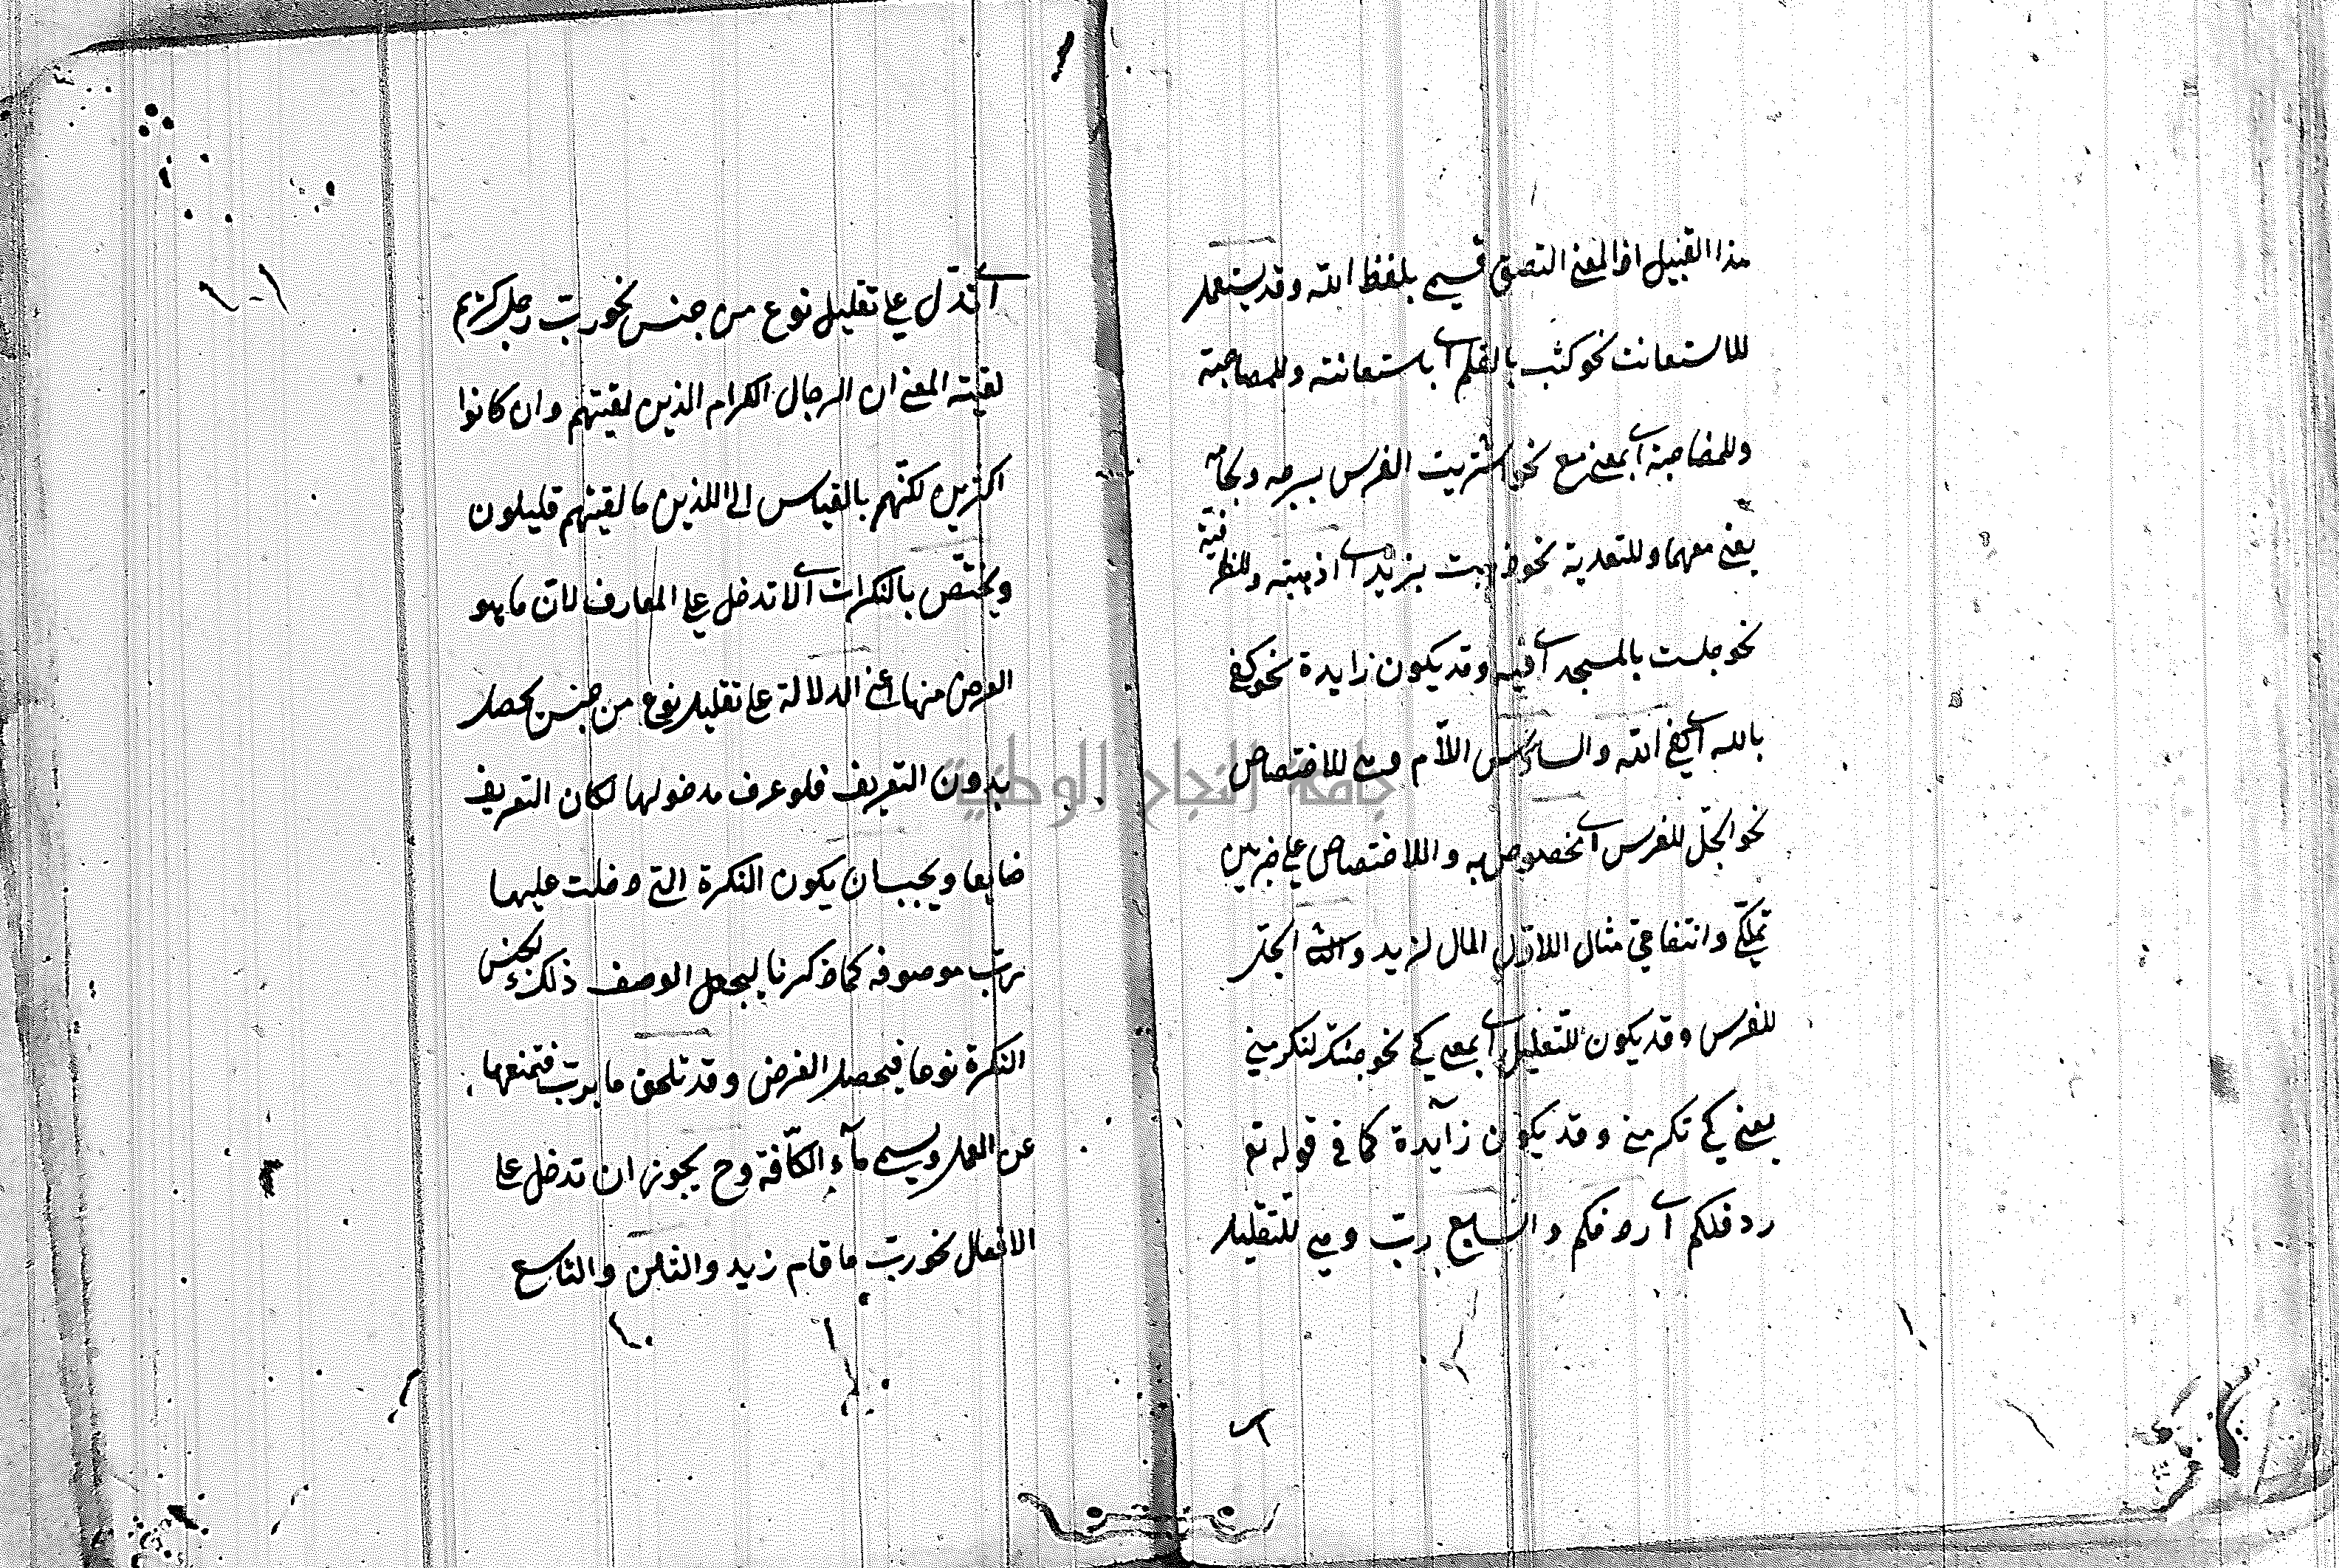 هذا القبيل اذ المعنى التصق قسمى بلفظ الله وقد يستعمل
للاستعانت نحو كتبت بالقلم اى باستعانته وللمصاحبة
وللمصاحبة اى بمعنى مع نحو اشتريت الفرس بسرجه ولجامه
يعنى معهما وللتعدية نحو ذهبت بزيد اى اذهبته وللظرفية
نحو جلست بالمسجد اى فيه وقد يكون زايدة نحو كفى
بالله اى كفى الله والسادس اللام وهى للاختصاص
نحو الجل للفرس اى مخصوص به والاختصاص على ضربين
تملكى وانتفاعى مثال الاول المال لزيد والثا الجل
للفرس وقد يكون للتعليل اى بمعنى كى نحو جئتك لتكرمنى
يعنى كى تكرمنى وقد يكون زآيدة كما فى قوله تع
ردف لكم اى ردفكم والسابع ربّ وهى للتقليل
اى تدل على تقليل نوع من جنس نحو ربّ رجل كريم
لقيته المعنى ان الرجال الكرام الذين لقيتهم وان كانوا
اكثرين لكنّهم بالقياس الى اللذين ما لقيتهم قليلون
ويختصّ بالنكرات اى لا تدخل على المعارف لانّ ما هو
الغرض منها اعنى الدلالة على تقليل نوع من جنس يحصل
بدون التعريف فلو عرف مدخولها لكان التعريف
ضايعا ويجب ان يكون النكرة التى دخلت عليها
ربّ موصوفه كما ذكرنا ليجعل الوصف ذلك الجنس
النكرة نوعا فيحصل الغرض وقد تلحق ما بربّ فتمنعها
عن العمل ويسمى مآء الكآفة وح يجوز ان تدخل على
الافعال نحو ربّ ما قام زيد والثامن والتاسع
جامعة النجاح الوطنية